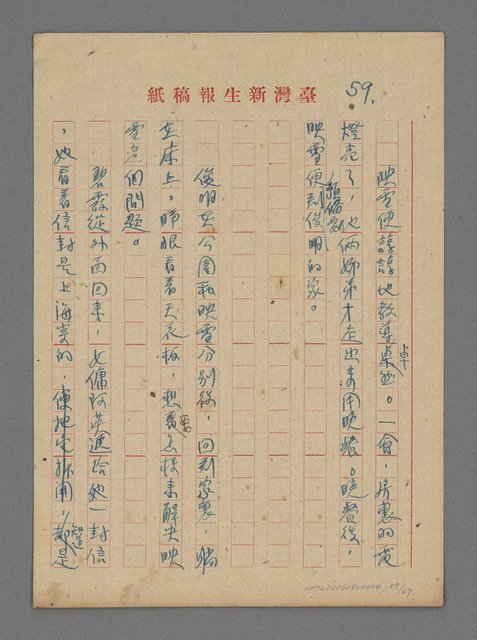 59.
臺灣新生報稿紙
映雪便諄諄地教導卓然。一會，房裏的電
燈亮了，他倆姊弟才走出來用晚膳。晚餐後，
映雪便到俊明的家。
俊明在公園和映雪分別後，回到家裏，躺
在床上，睜眼看着天花板，想着怎樣來解決映
雪這個問題。
碧霞從外面回來，女傭阿英遞給她一封信
，她看着信封是上海寄的，便把它拆開，知道是
NMTL20060900014 59/67